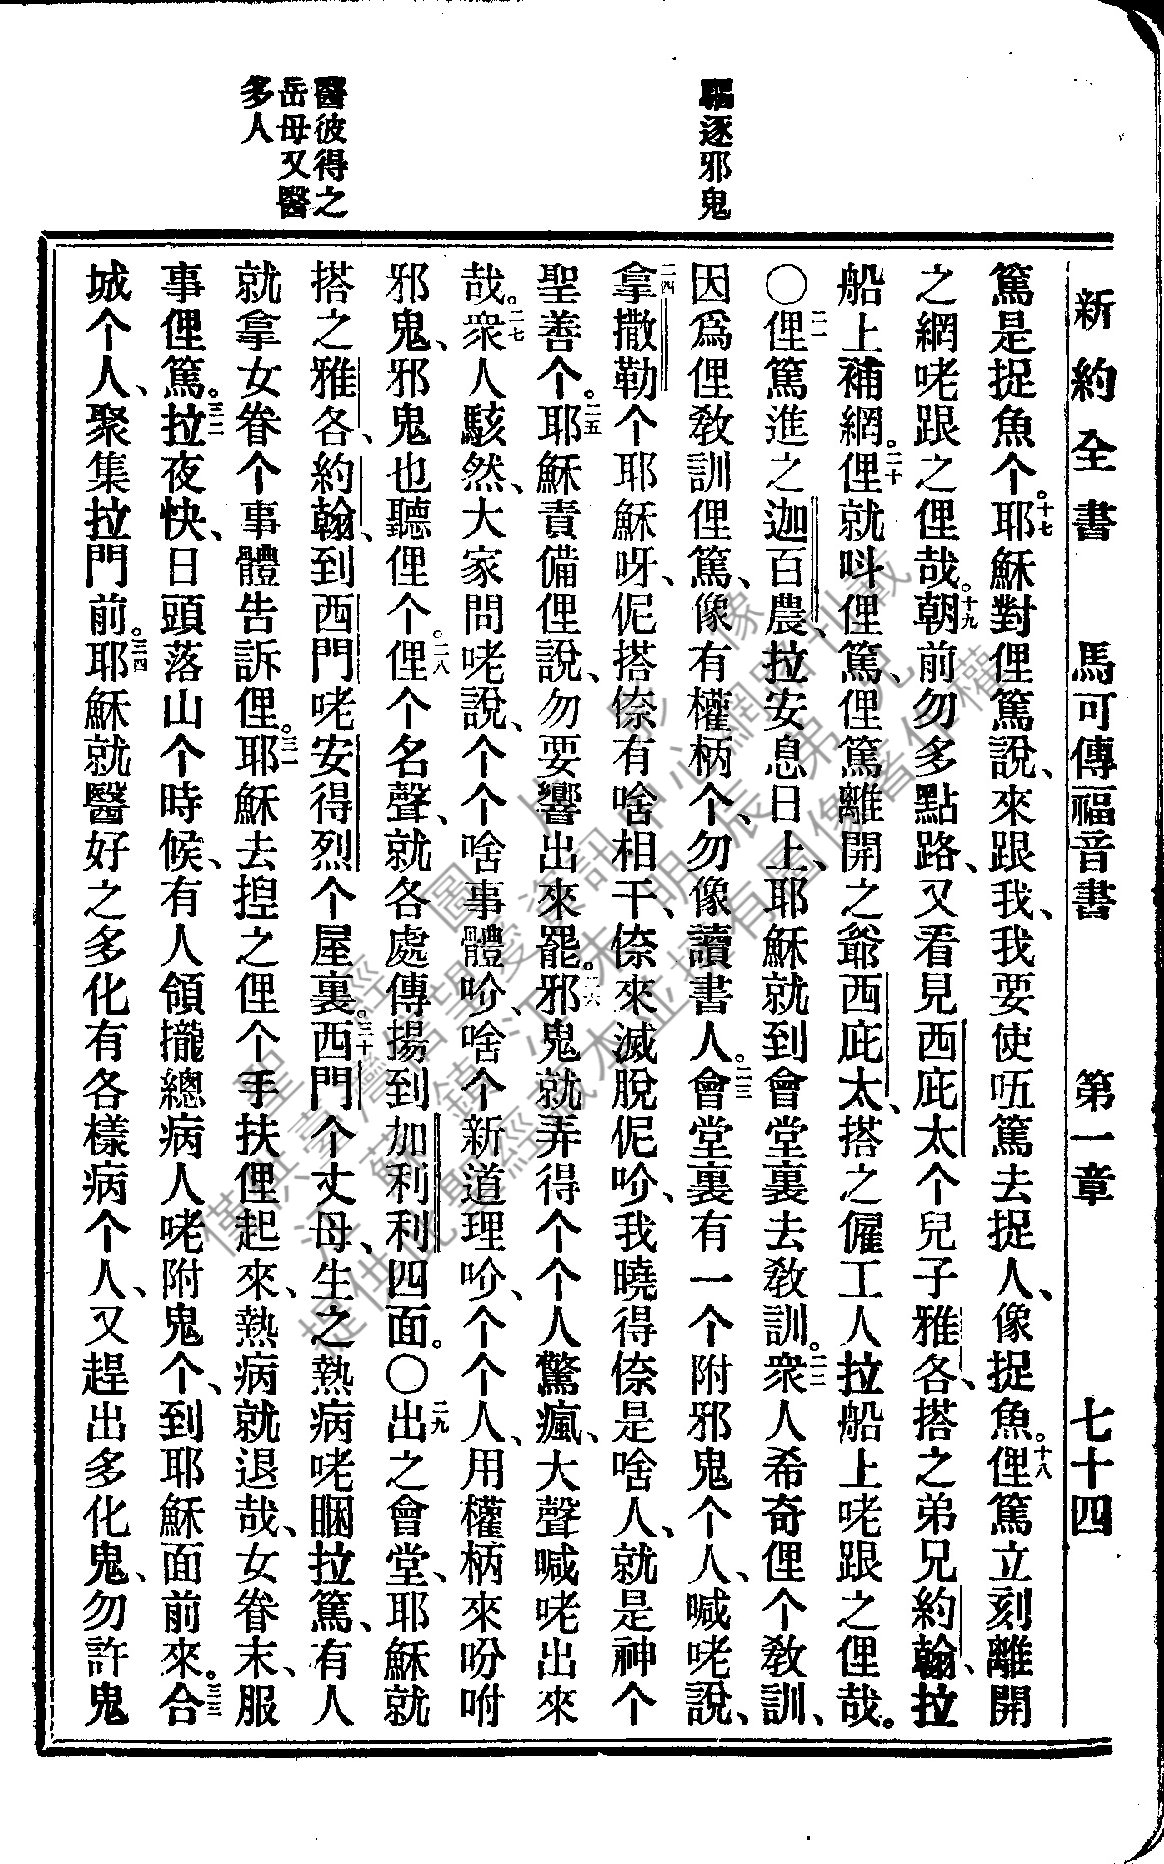 新約全書　馬可傳福音書　第一章　七十四
驅逐邪鬼
醫彼得之
岳母又醫
多人
篤是捉魚个。十七耶穌對俚篤說、來跟我、我要使㕶篤去捉人、像捉魚。十八俚篤立刻離開
之網咾跟之俚哉。十九朝前勿多點路、又看見西庇太个兒子雅各、搭之弟兄約翰、拉
船上補網。二十俚就呌俚篤、俚篤離開之爺西庇太、搭之僱工人拉船上咾跟之俚哉。
〇二一俚篤進之迦百農、拉安息日上、耶穌就到會堂裏去教訓。二二衆人希奇俚个教訓、
因爲俚教訓俚篤、像有權柄个、勿像讀書人。二三會堂裏有一个附邪鬼个人、喊咾說、
二四拿撒勒个耶穌呀、伲搭倷有啥相干、倷來滅脫伲吤、我曉得倷是啥人、就是神个
聖善个。二五耶穌責備俚說、勿要響出來罷。二六邪鬼就弄得个个人驚瘋、大聲喊咾出來
哉。二七衆人駭然、大家問咾說、个个啥事體吤、啥个新道理吤、个个人、用權柄來吩咐
邪鬼、邪鬼也聽俚个。二八俚个名聲、就各處傳揚到加利利四面。〇二九出之會堂、耶穌就
搭之雅各、約翰、到西門咾安得烈个屋裏。三十西門个丈母、生之熱病咾睏拉篤、有人
就拿女眷个事體告訴俚。三一耶穌去揑之俚个手扶俚起來、熱病就退哉、女眷末、服
事俚篤。三二拉夜快、日頭落山个時候、有人領攏總病人咾附鬼个、到耶穌面前來。三三合
城个人、聚集拉門前。三四耶穌就醫好之多化有各樣病个人、又趕出多化鬼、勿許鬼
聖經圖
僅供臺灣信望愛資訊中心網站刊載
江蘇鎮江朱明辰弟兄
提供此聖經藏本並擁有圖像著作權